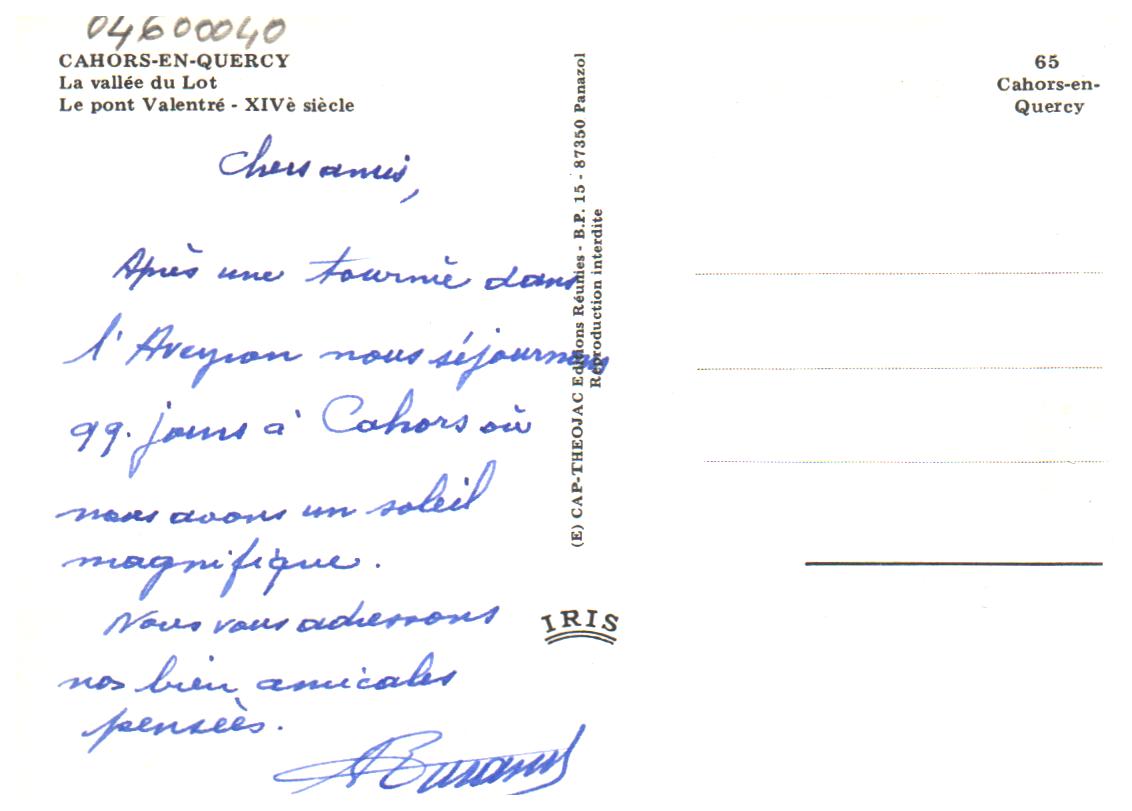 04600040
CAHORS-EN-QUERCY
La vallée du Lot
Le pont Valentré - XIVè siècle
Chers amis,
Après une tournée dans
l'Aveyron nous séjournons
qq. jours à Cahors où
nous avons un soleil
magnifique.
Nous vous adressons
nos bien amicales
pensées.
(E) CAP-THEOJAC Editions Réunies - B.P. 15 - 87350 Panazol
Reproduction interdite
IRIS
65
Cahors-en-
Quercy